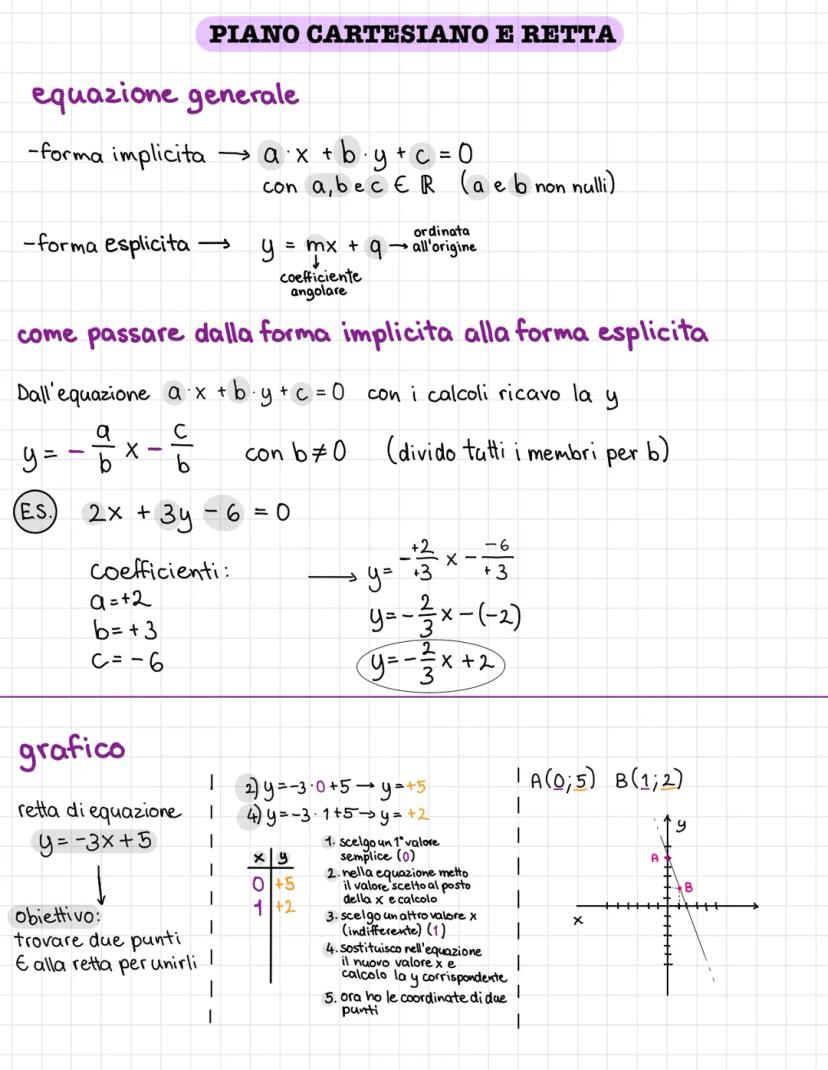 PIANO CARTESIANO E RETTA
equazione generale
-forma implicita → a·x + b·y + c = 0
con a, b e c ∈ ℝ (a e b non nulli)
-forma esplicita → y = mx + q → ordinata all'origine
↓
coefficiente
angolare
come passare dalla forma implicita alla forma esplicita
Dall'equazione a·x + b·y + c = 0 con i calcoli ricavo la y
y = - a/b x - c/b con b ≠ 0 (divido tutti i membri per b)
ES. 2x + 3y - 6 = 0
coefficienti:
a = +2
b = +3
c = -6
→ y = - +2/+3 x - -6/+3
y = - 2/3 x - (-2)
y = - 2/3 x + 2
grafico
retta di equazione
y = -3x + 5
↓
obiettivo:
trovare due punti
∈ alla retta per unirli
2) y = -3·0 + 5 → y = +5
4) y = -3·1 + 5 → y = +2
x | y
0 | +5
1 | +2
1. scelgo un 1° valore
semplice (0)
2. nella equazione metto
il valore scelto al posto
della x e calcolo
3. scelgo un altro valore x
(indifferente) (1)
4. sostituisco nell'equazione
il nuovo valore x e
calcolo la y corrispondente
5. ora ho le coordinate di due
punti
A(0;5) B(1;2)
y
A
B
x